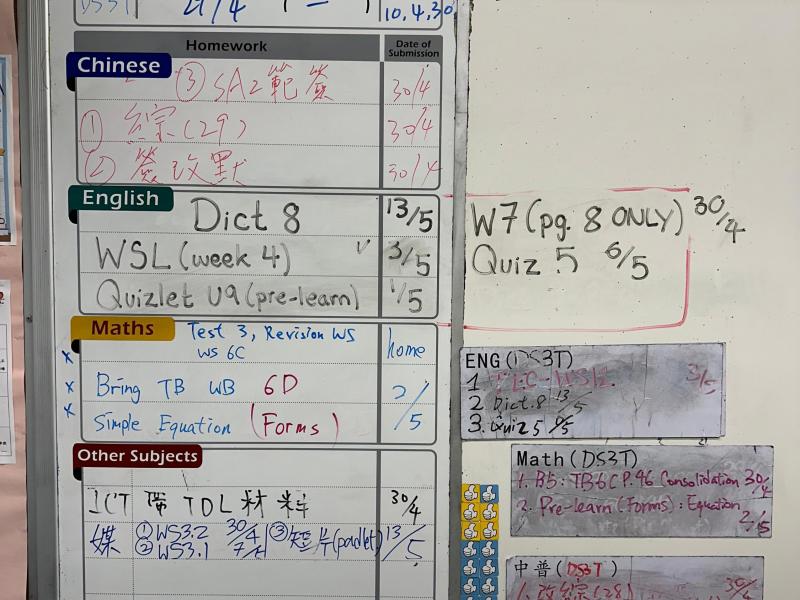 DS3T 4/4
10.4.30
Homework
Date of Submission
Chinese
③ SA2 範簽 30/4
① 綜(29) 30/4
② 簽改默 30/4
English
Dict 8 13/5
WSL (week 4) √ 3/5
Quizlet U9 (pre-learn) 1/5
W7 (pg. 8 ONLY) 30/4
Quiz 5 6/5
Maths
Test 3, Revision WS
WS 6C home
Bring TB WB 6D 2/5
Simple Equation (Forms)
Other Subjects
ICT 帶 TDL 材料 30/4
媒 ① WS3.2 30/4 ③ 短片 (padlet) 13/5
② WS3.1
ENG (DS3T)
1 3/5
2 Dict.8 13/5
3. Quiz 5
Math (DS3T)
1. B5: TB6C P.96 Consolidation 30/4
2. Pre-learn (Forms): Equation 2/5
中普 (DS3T)
1. 改綜(28) 30/4